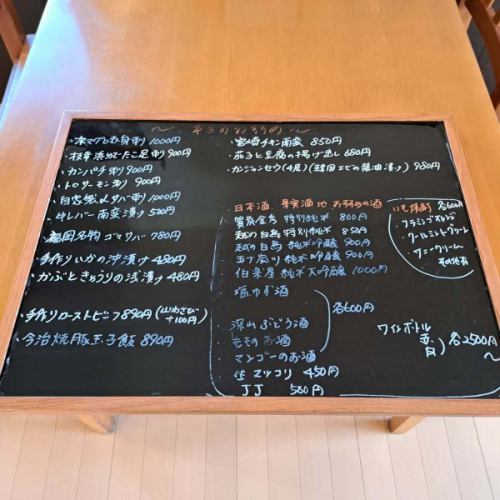 ～ 本日のおすすめ ～
・本マグロ赤身刺 1000円
たこ足刺 900円
・カンパチ刺 900円
・トロサーモン刺 900円
刺 1000円
・牛レバー南蛮漬 580円
・福岡名物ゴマサバ 780円
・手作りいかの沖漬け 480円
・かぶときゅうりの浅漬け 480円
・手作りローストビーフ 890円 (山わさび +100円)
・今治焼豚玉子飯 890円
・宮崎チキン南蛮 850円
・茄子と豆腐の揚げ出し 680円
・カンジャンセウ(4尾)(韓国エビの醤油漬け) 980円
日本酒、果実酒他 お勧めの酒
特別純米 800円
・越の白鳥 特別純米 850円
・越の白鳥 純米吟醸 900円
純米吟醸 900円
・伯楽星 純米大吟醸 1000円
・塩ゆず酒
・深山ぶどう酒
・ももお酒
・マンゴーのお酒
各600円
・生マッコリ 450円
・JJ 580円
いも焼酎 各600円
・フラミンゴオレンジ
・クールミントグリーン
・サニークリーム
その他有
ワインボトル
赤
白
各2500円～